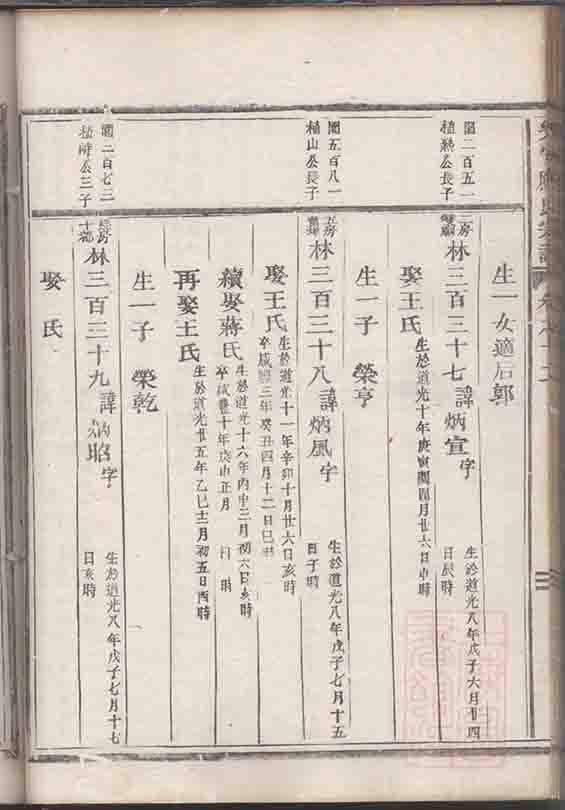 生一女適后郭
閏二百五一
植綵公長子
二房
林三百三十七諱炳宣字
生於道光八年戊子六月廿四
日辰時
娶王氏
生於道光十年庚寅閏四月廿六日申時
生一子 榮亨
閏五百八一
植山公長子
林三百三十八諱炳風字
生於道光八年戊子七月十五
日子時
娶王氏
生於道光十一年辛卯十月廿六日亥時
卒咸豐三年癸丑四月十二日巳時
續娶蔣氏
生於道光十六年丙申三月初六日亥時
卒咸豐十年庚申正月 日 時
再娶王氏
生於道光廿五年乙巳十二月初五日酉時
生一子 榮乾
閏二百七三
植時公三子
林三百三十九諱炳昭字
生於道光八年戊子七月十七
日亥時
娶 氏